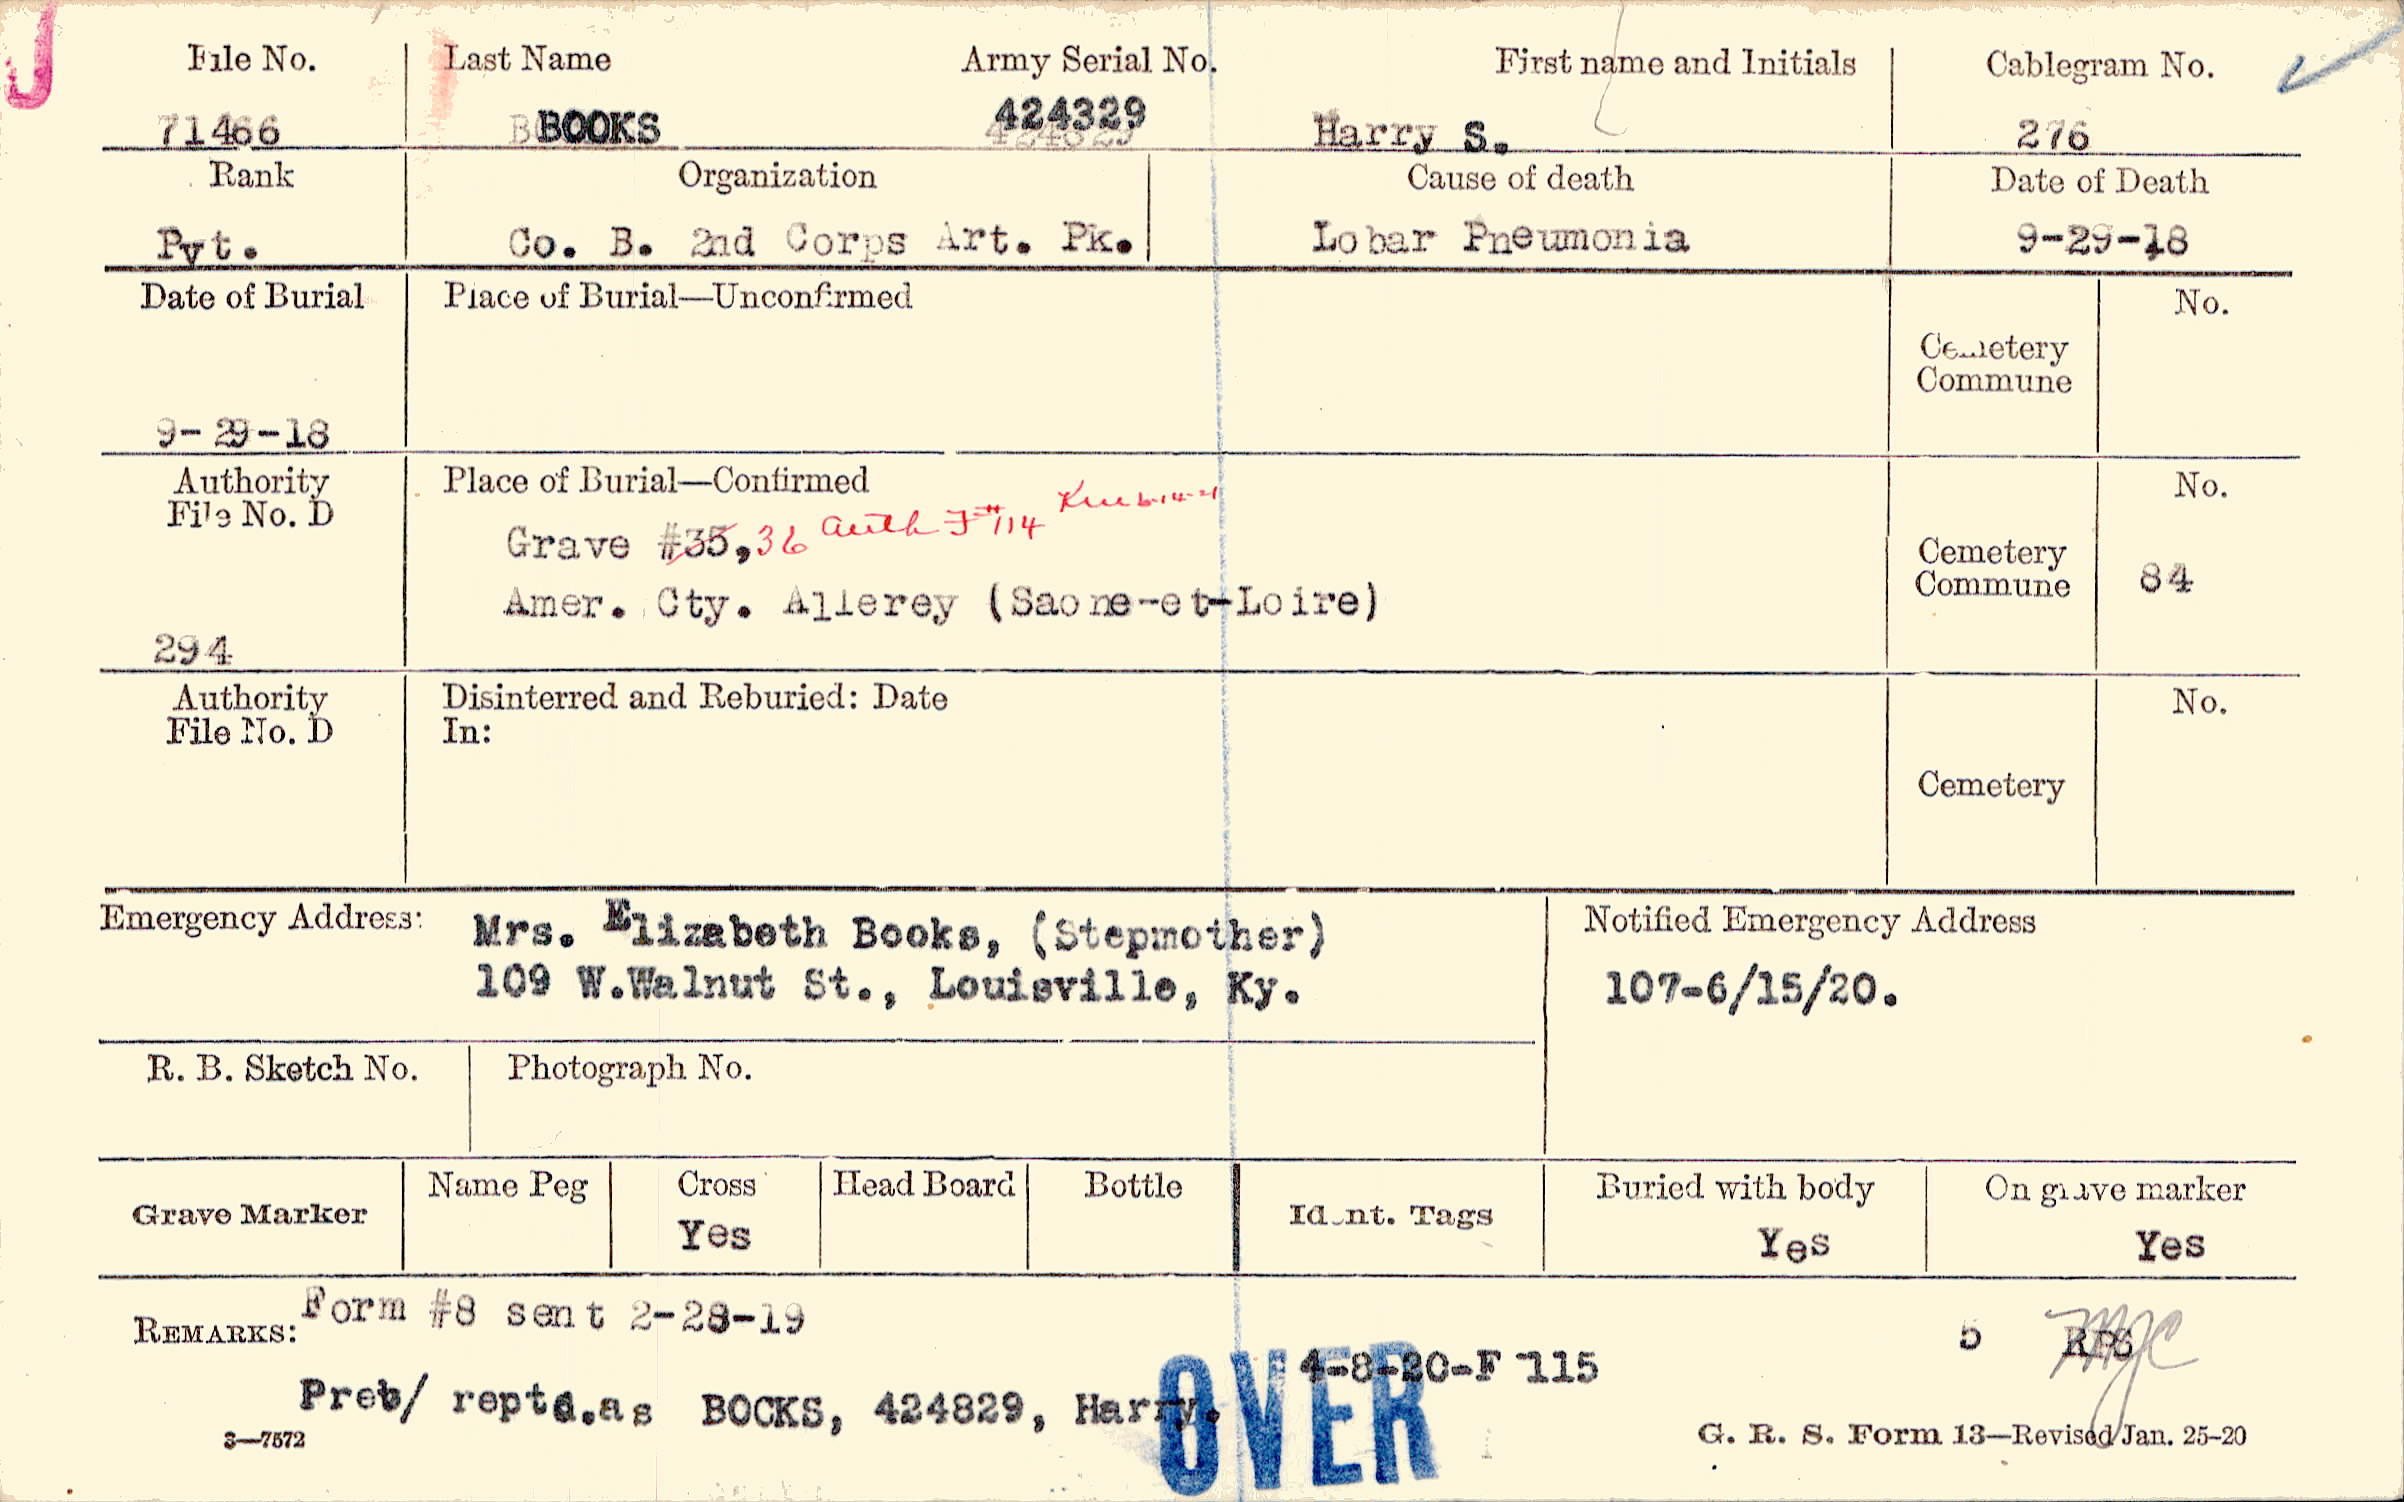 J
File No. Last Name Army Serial No. First name and Initials Cablegram No.
71466 BOOKS 424329 Harry S. 276
Rank Organization Cause of death Date of Death
Pvt. Co. B. 2nd Corps Art. Pk. Lobar Pneumonia 9-29-18
Date of Burial Place of Burial—Unconfirmed No.
Cemetery
Commune
9-29-18
Authority Place of Burial—Confirmed No.
File No. D
Grave #35, 36 auth F#114
Amer. Cty. Allerey (Saone-et-Loire)
Cemetery
Commune 84
294
Authority Disinterred and Reburied: Date No.
File No. D In:
Cemetery
Emergency Address: Mrs. Elizabeth Books, (Stepmother)
109 W.Walnut St., Louisville, Ky.
Notified Emergency Address
107-6/15/20.
R. B. Sketch No. Photograph No.
Grave Marker Name Peg Cross Head Board Bottle Ident. Tags Buried with body On grave marker
Yes Yes Yes
REMARKS: Form #8 sent 2-28-19
4-8-20-F 115
5 RPS
MJC
reptd.as BOCKS, 424829, Harry.
OVER
3—7572
G. R. S. Form 13—Revised Jan. 25-20